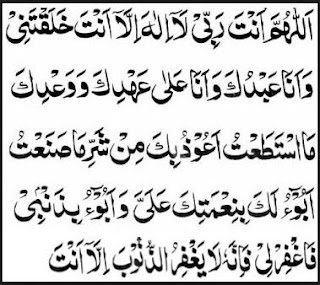 اَللّٰهُمَّ اَنْتَ رَبِّىْ لَآ اِلٰهَ اِلَّآ اَنْتَ خَلَقْتَنِىْ
وَاَنَا عَبْدُكَ وَاَنَا عَلٰى عَهْدِكَ وَوَعْدِكَ
مَا اسْتَطَعْتُ اَعُوْذُ بِكَ مِنْ شَرِّ مَا صَنَعْتُ
اَبُوْٓءُ لَكَ بِنِعْمَتِكَ عَلَىَّ وَاَبُوْٓءُ بِذَنْۢبِىْ
فَاغْفِرْلِىْ فَاِنَّهٗ لَا يَغْفِرُ الذُّنُوْبَ اِلَّآ اَنْتَ